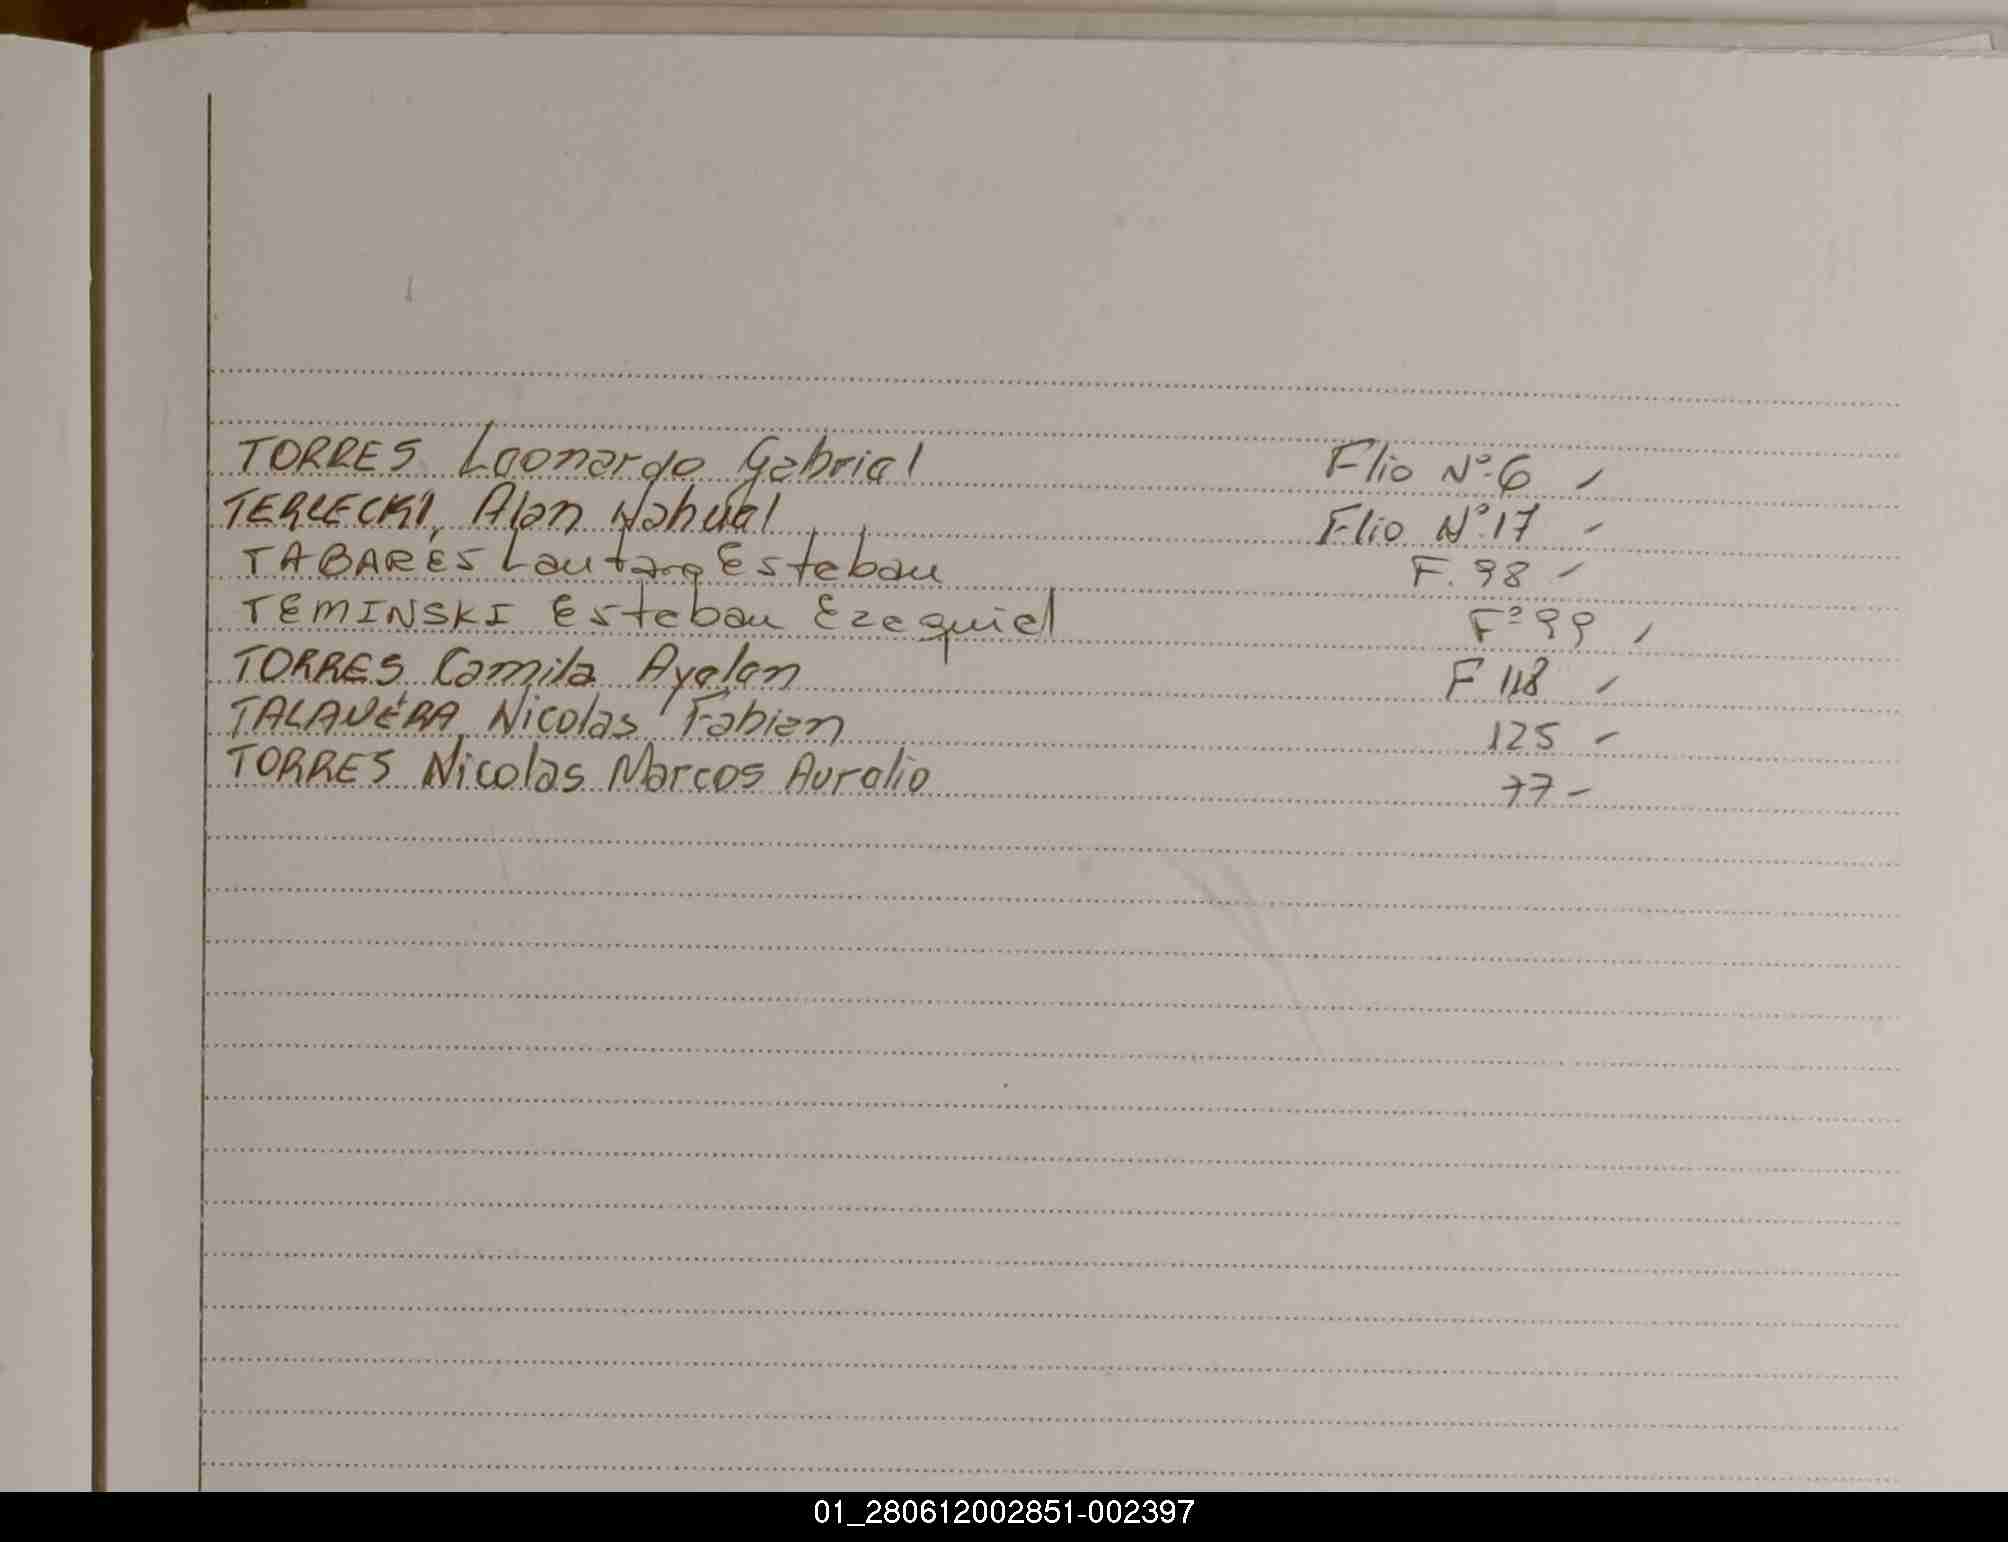 TORRES Leonardo Gabriel Flio Nº 6
TERLECKI, Alan Nahuel Flio Nº 17
TABARES Lautaro Esteban F. 98
TEMINSKI Esteban Ezequiel Fº 99
TORRES Camila Ayelen F 118
TALAVERA Nicolas Fabian 125
TORRES Nicolas Marcos Aurelio 77
01_280612002851-002397